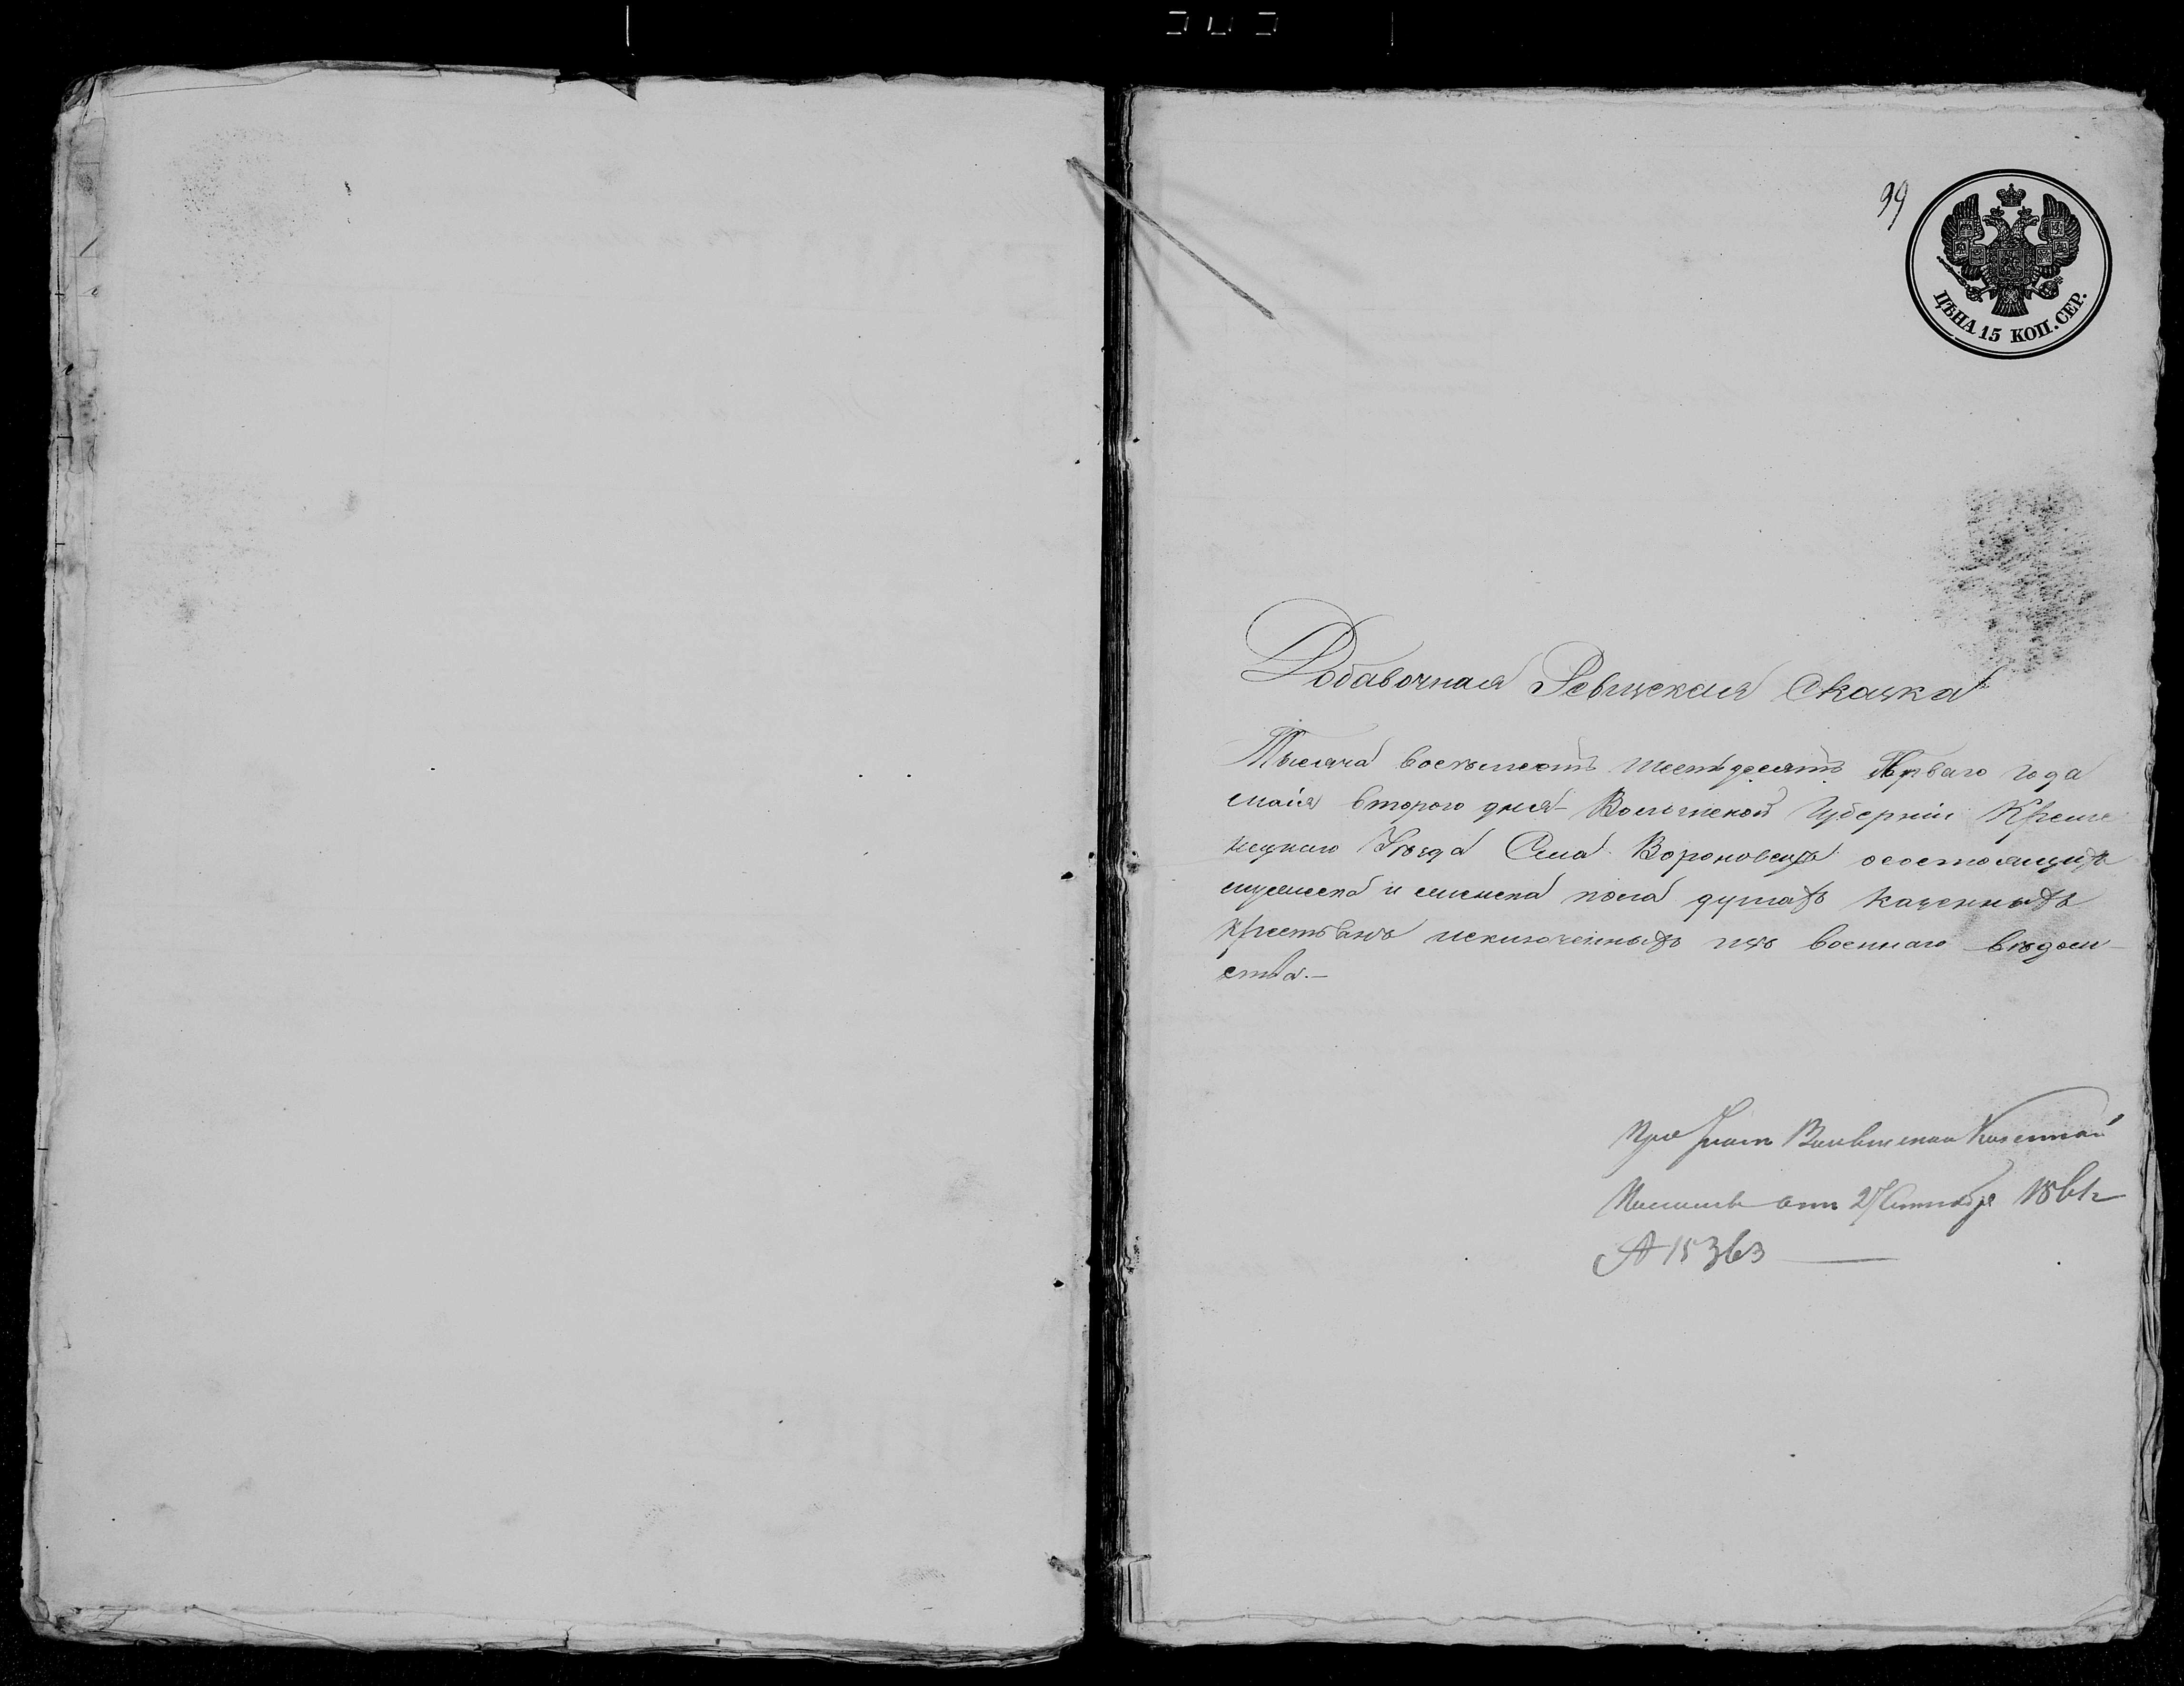 99
ЦѢНА 15 КОП. СЕР.
Добавочная Ревизская Сказка
Тысяча восемьсотъ шестьдесятъ Перваго года
маія второго дня – Волынской Губерніи Креме
нецкаго Уѣзда Села Вороновецъ о состоящихъ
мужеска и женска пола душахъ казенныхъ
крестьянъ исключенныхъ изъ военнаго вѣдом-
ства.–
При Указѣ Волынской Казенной
Палаты отъ 27 Сентября 1861 г
№ 15363